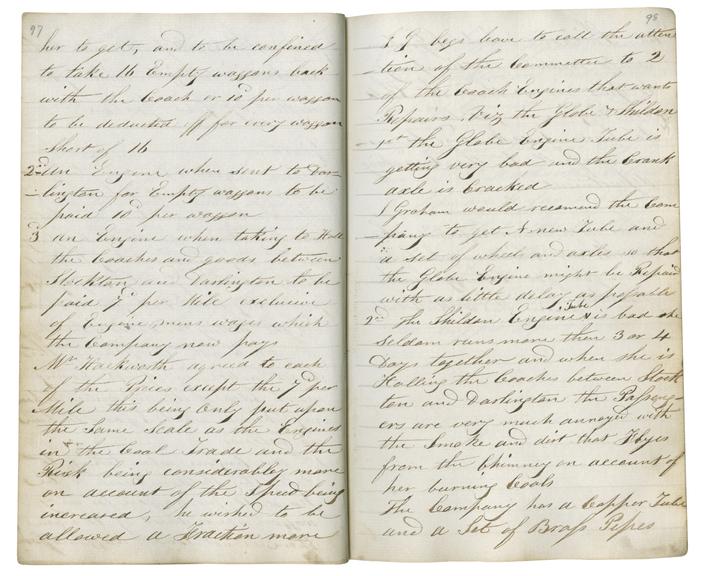 97
her to get, and to be confined
to take 16 Empty waggons back
with the Coach or 10d per waggon
to be deducted off for every waggon
short of 16
2nd An Engine when sent to Dar-
-lington for Empty waggons to be
paid 10d per waggon
3 An Engine when taking to Hall
the Coaches and goods between
Stockton and Darlington to be
paid 7d per Mile exclusive
of Engine mens wages which
the Company now pays
Mr Hackworth agreed to each
of the Prices except the 7d per
Mile this being Only put upon
the Same Scale as the Engines
in the Coal Trade and the
Risk being considerably more
on account of the Speed being
increased, he wished to be
allowed a Fraction more
98
I G begs leave to call the atten
-tion of the Committee to 2
of the Coach Engines that wants
Repairs Viz the Globe & Shildon
1st the Globe Engine Tube is
getting very bad and the Crank
axle is Cracked
I Graham would recomend the Com
pany to get A new Tube and
a set of wheels and axles so that
the Globe Engine might be Repaird
with as little delay as possable
2nd The Shildon Engine Tube is bad she
Seldom runs more then 3 or 4
Days together and when she is
Halling the Coaches between Stock
ton and Darlington the Passeng-
ers are very much annoyed with
the Smoke and dirt that Flyes
from the Chimney on account of
her burning Coals
The Company has a Copper Tube
and a Set of Brass Pipes